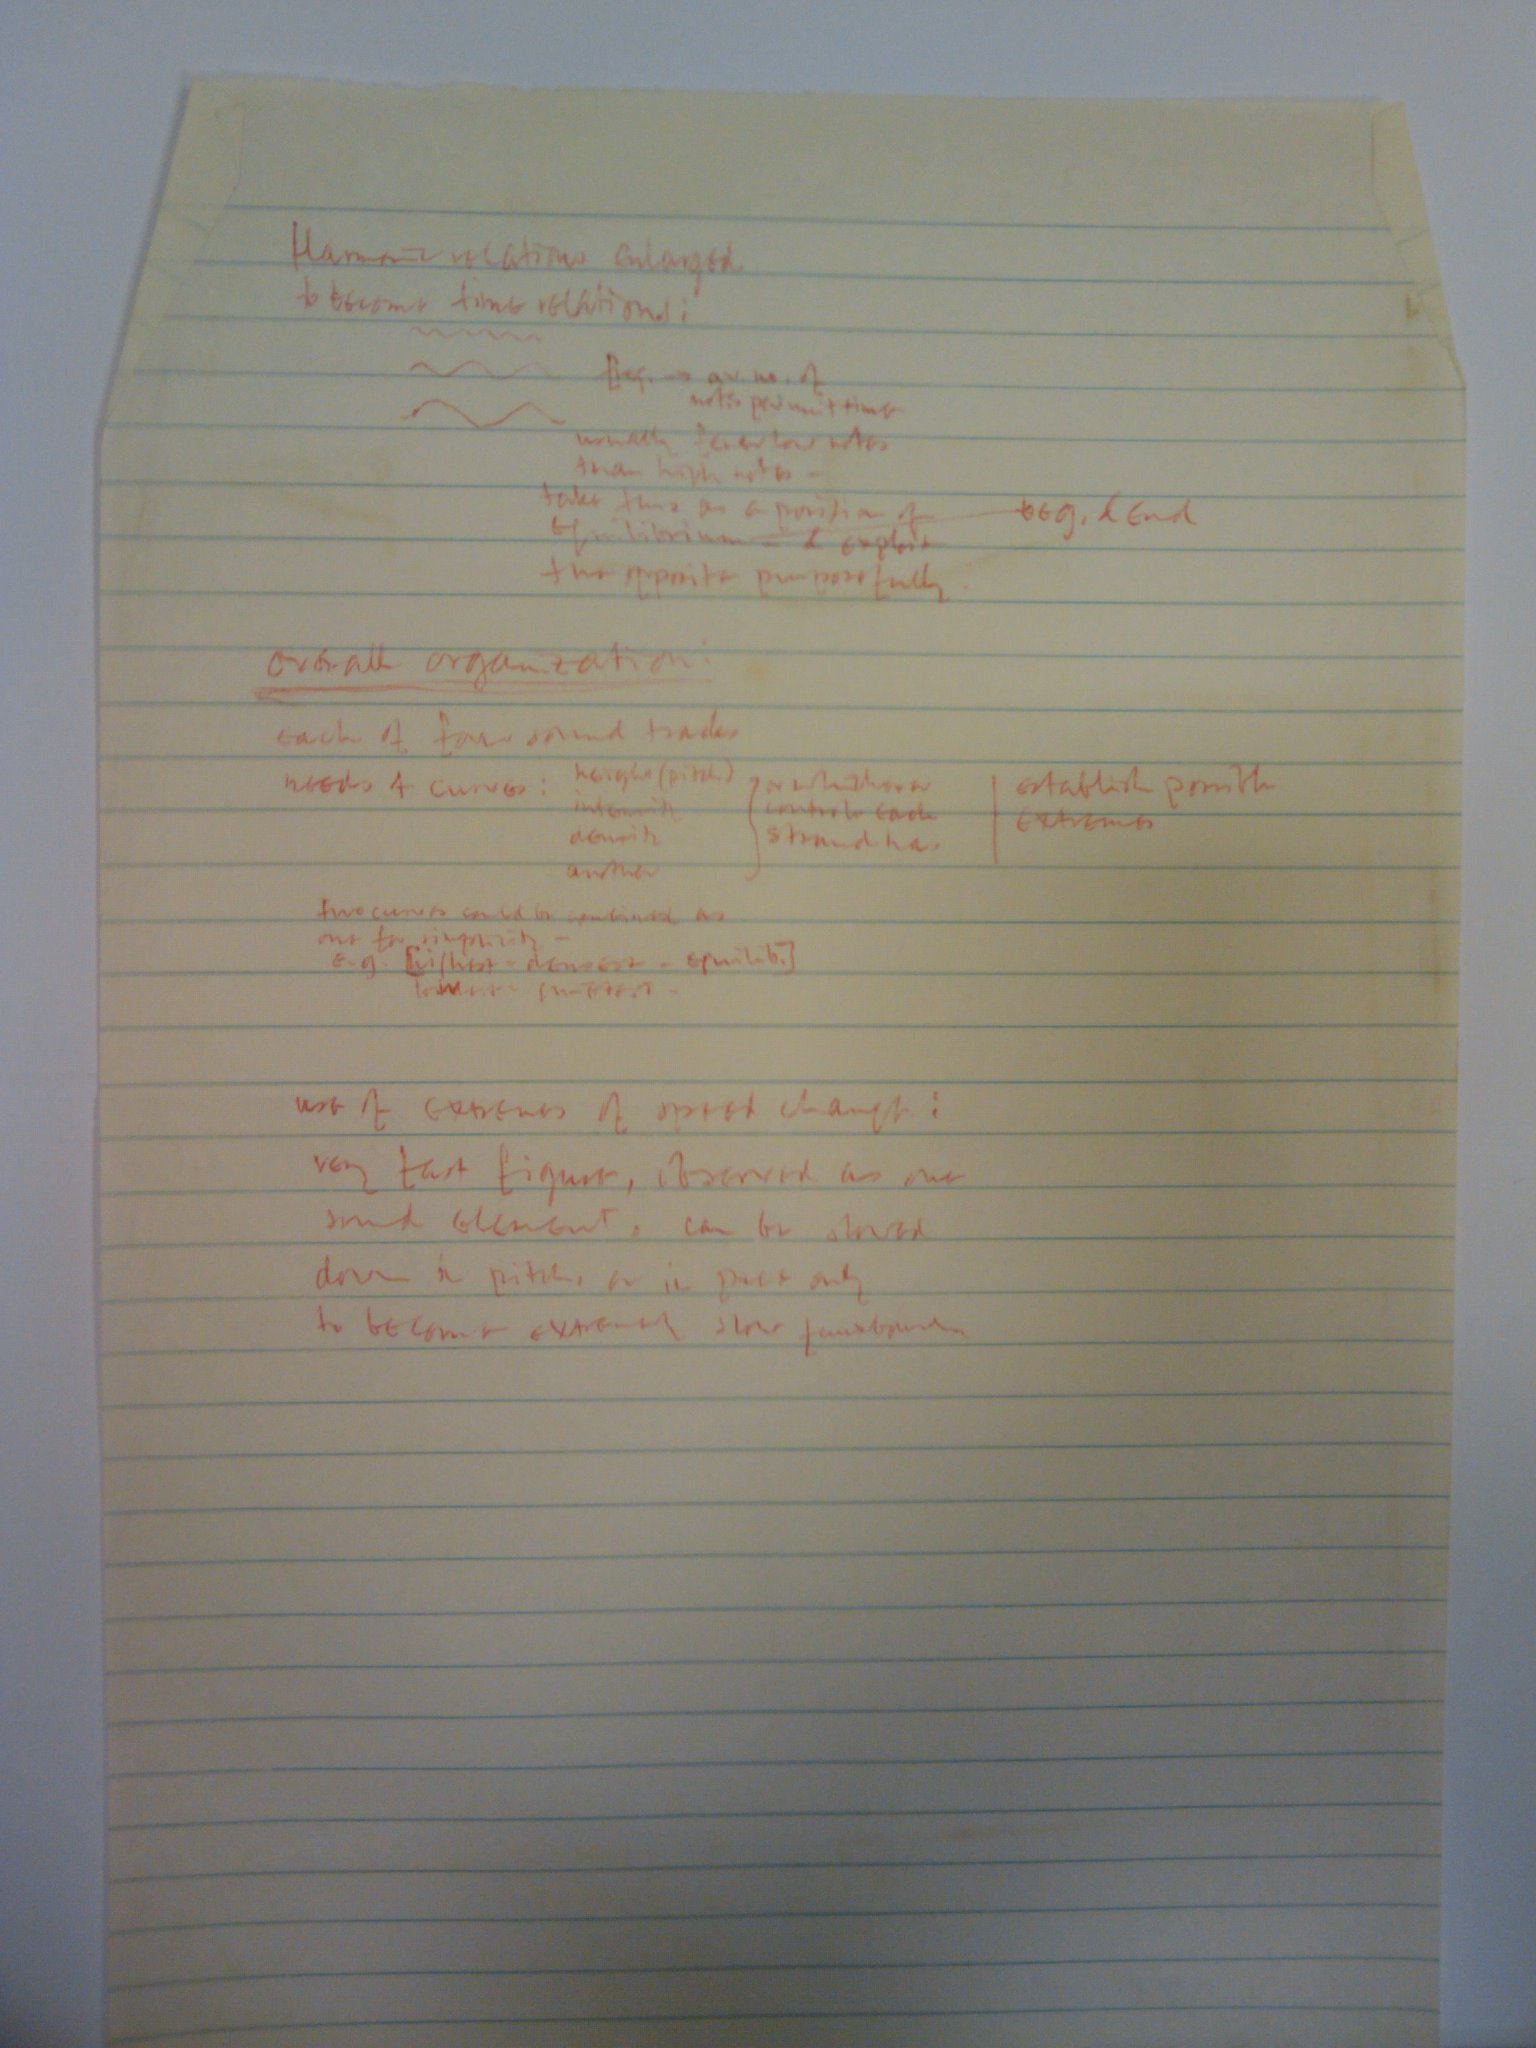 Harmonic relations enlarged
to become time relations:
freq. → av. no. of
notes per unit time
usually fewer low notes
than high notes –
take this as a position of
equilibrium – & exploit
the opposite purposefully.
beg. & end
overall organization:
each of four sound tracks
needs 4 curves:
height (pitch)
intensity
density
another
or whichever
controls each
strand has
establish possible
extremes
two curves could be combined as
one for simplicity –
e.g. [highest – densest – equilib.]
lowest –
use of extremes of speed change:
very fast figure, observed as one
sound element, can be slowed
down in pitch, or in pace only
to become extremely slow